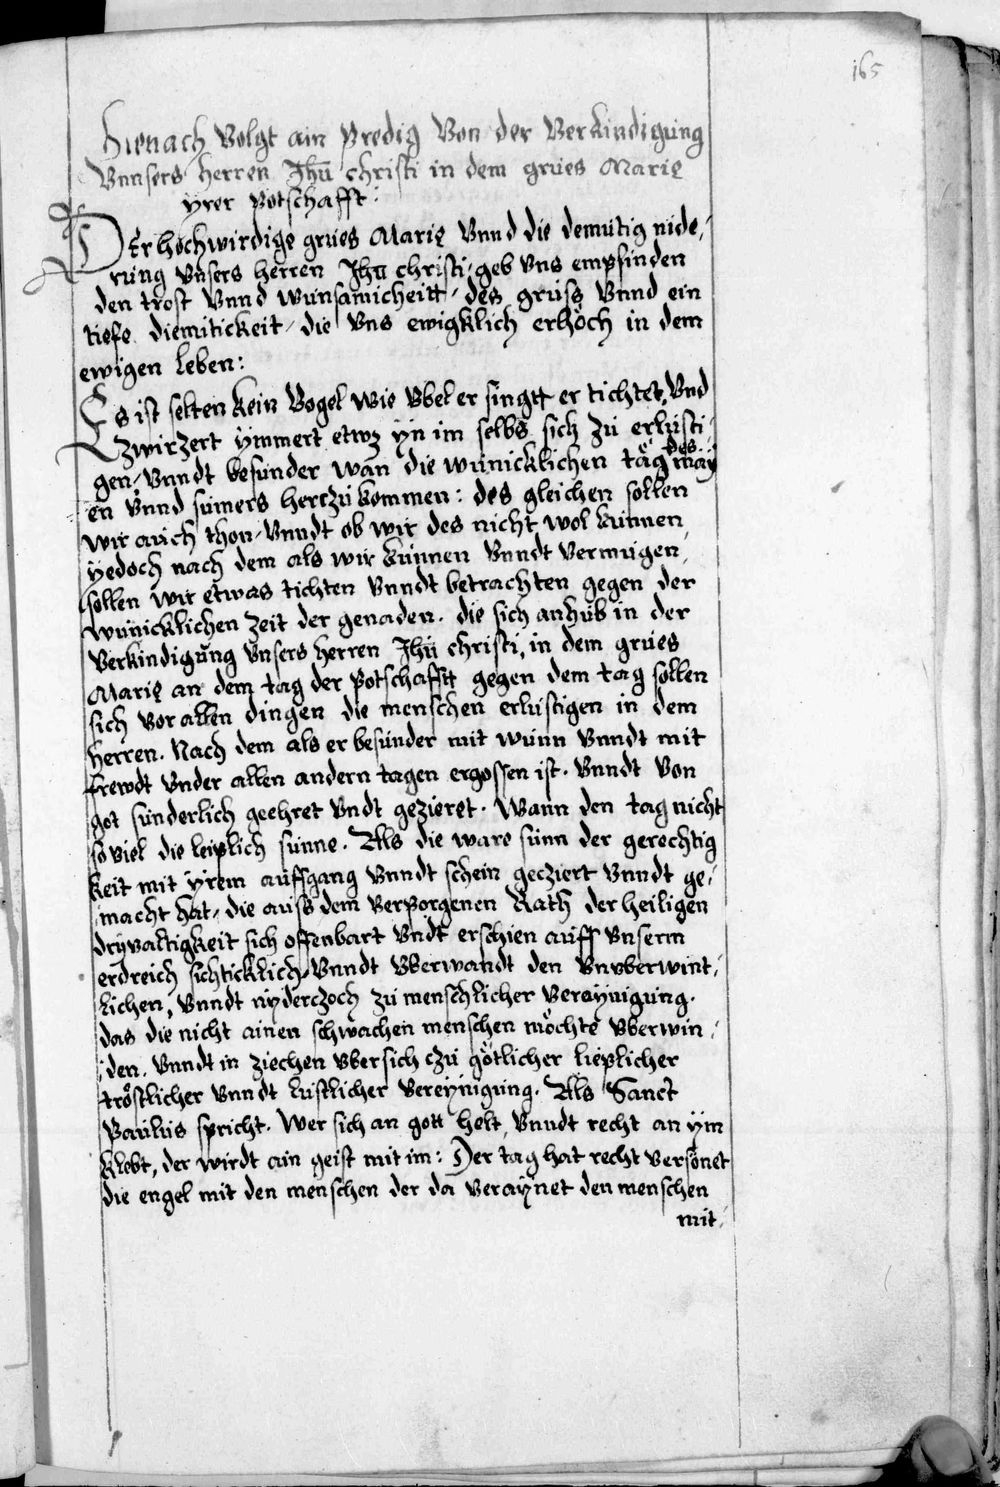 165
Hienach Volgt ain Predig Von der Verkindigung
Vnnsers herren Jhu christi in dem grues Marię
yrer potschafft:
DEr hochwirdige grues Marię Vnnd die demütig nide,
rung vnsers herren Jhu christi, geb vns empfinden
den trost Vnnd wunsamicheitt, des gruss Vnnd ein
tiefe diemitickeit, die vns ewigklich erhöch in dem
ewigen leben:
Es ist selten kein Vogel wie vbel er singtt er tichtet, Vnd
zwirzert ymmert etwz yn im selbs sich zu erlusti,
gen, Vnndt besunder wan die wunicklichen täg des may
en Vnnd sumers herczu kommen: des gleichen sollen
wir auch thon, Vnndt ob wir des nicht wol künnen
yedoch nach dem als wir künnen Vnndt vermugen,
sollen wir etwas tichten Vnndt betrachten gegen der
wunicklichen zeit der genaden. die sich anhub in der
Verkindigung Vnsers herren Jhu christi, in dem grues
Marię an dem tag der potschafftt gegen dem tag sollen
sich vor allen dingen die menschen erlustigen in dem
herren. Nach dem als er besunder mit wunn Vnndt mit
frewdt vnder allen andern tagen ergossen ist. Vnndt von
got sunderlich geehret Vndt gezieret. Wann den tag nicht
so viel die leiplich sunne. Als die ware sunn der gerechtig
keit mit yrem auffgang Vnndt schein gecziert Vnndt ge,
macht hat, die auss dem verporgenen Rath der heiligen
dryvaltigkeit sich offenbart Vndt erschien auff vnserm
erdreich sichticklich, Vnndt vberwandt den Vnvberwint,
lichen, Vnndt nyderczoch zu menschlicher Veraynigung.
das die nicht ainen schwachen menschen möchte vberwin,
den. Vnndt in ziechen vbersich czu götlicher lieplicher
tröstlicher Vnndt lustlicher Vereynigung. Als Sanct
Paulus spricht. Wer sich an gott helt, Vnndt recht an ym
klebt, der wirdt ain geist mit im: Der tag hat recht versönet
die engel mit den menschen der da veraynet den menschen
mit,